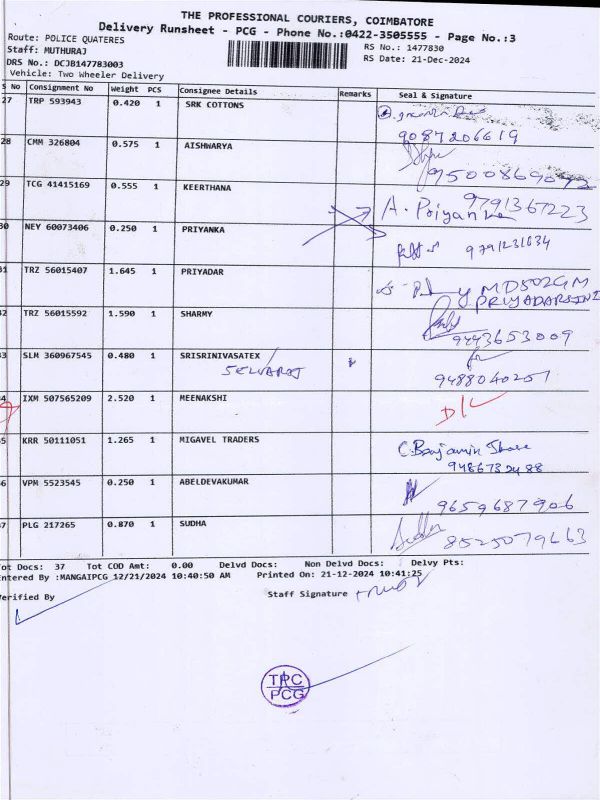 THE PROFESSIONAL COURIERS, COIMBATORE
Delivery Runsheet - PCG - Phone No.:0422-3505555 - Page No.:3
Route: POLICE QUATERES
RS No.: 1477830
Staff: MUTHURAJ
RS Date: 21-Dec-2024
DRS No.: DCJB147783003
Vehicle: Two Wheeler Delivery
S No Consignment No Weight PCS Consignee Details Remarks Seal & Signature
27 TRP 593943 0.420 1 SRK COTTONS
9087206619
28 CMM 326804 0.575 1 AISHWARYA
9500869072
29 TCG 41415169 0.555 1 KEERTHANA
9791367223
A. Priyanka
30 NEY 60073406 0.250 1 PRIYANKA
9791231634
31 TRZ 56015407 1.645 1 PRIYADAR
MD502GM
PRIYADARSINI
32 TRZ 56015592 1.590 1 SHARMY
9443653009
33 SLM 360967545 0.480 1 SRISRINIVASATEX
SELVARAJ
9488040251
34 IXM 507565209 2.520 1 MEENAKSHI
D/L
35 KRR 50111051 1.265 1 MIGAVEL TRADERS
C. Benjamin
9486732488
36 VPM 5523545 0.250 1 ABELDEVAKUMAR
9659687906
37 PLG 217265 0.870 1 SUDHA
Sudha
8525079663
Tot Docs: 37 Tot COD Amt: 0.00 Delvd Docs: Non Delvd Docs: Delvy Pts:
Entered By :MANGAIPCG 12/21/2024 10:40:50 AM Printed On: 21-12-2024 10:41:25
Verified By Staff Signature
TPC
PCG